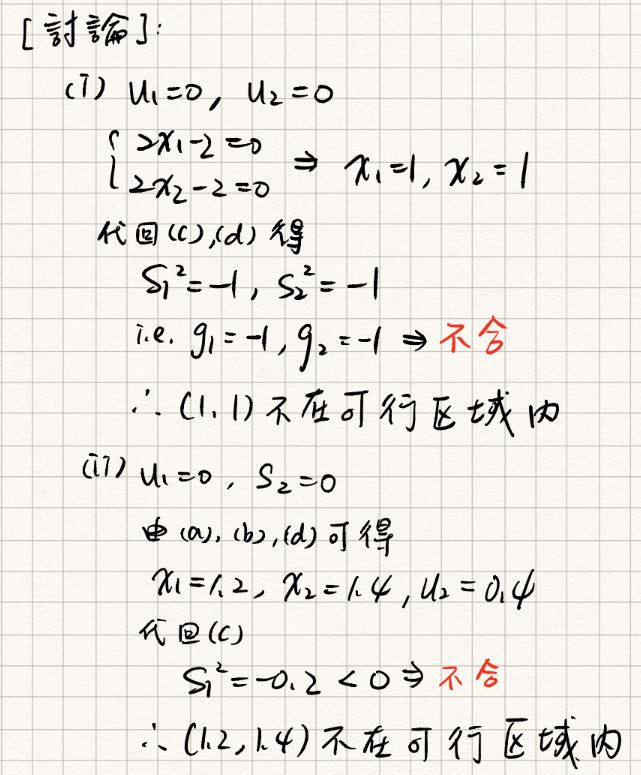 [討論]:
(i) u₁=0, u₂=0
{ 2x₁-2=0
2x₂-2=0 ⇒ x₁=1, x₂=1
代回(c),(d)得
S₁²=-1, S₂²=-1
i.e. g₁=-1, g₂=-1 ⇒ 不合
∴ (1,1)不在可行区域内
(ii) u₁=0, S₂=0
由(a),(b),(d)可得
x₁=1.2, x₂=1.4, u₂=0.4
代回(c)
S₁²=-0.2<0 ⇒ 不合
∴ (1.2,1.4)不在可行区域内